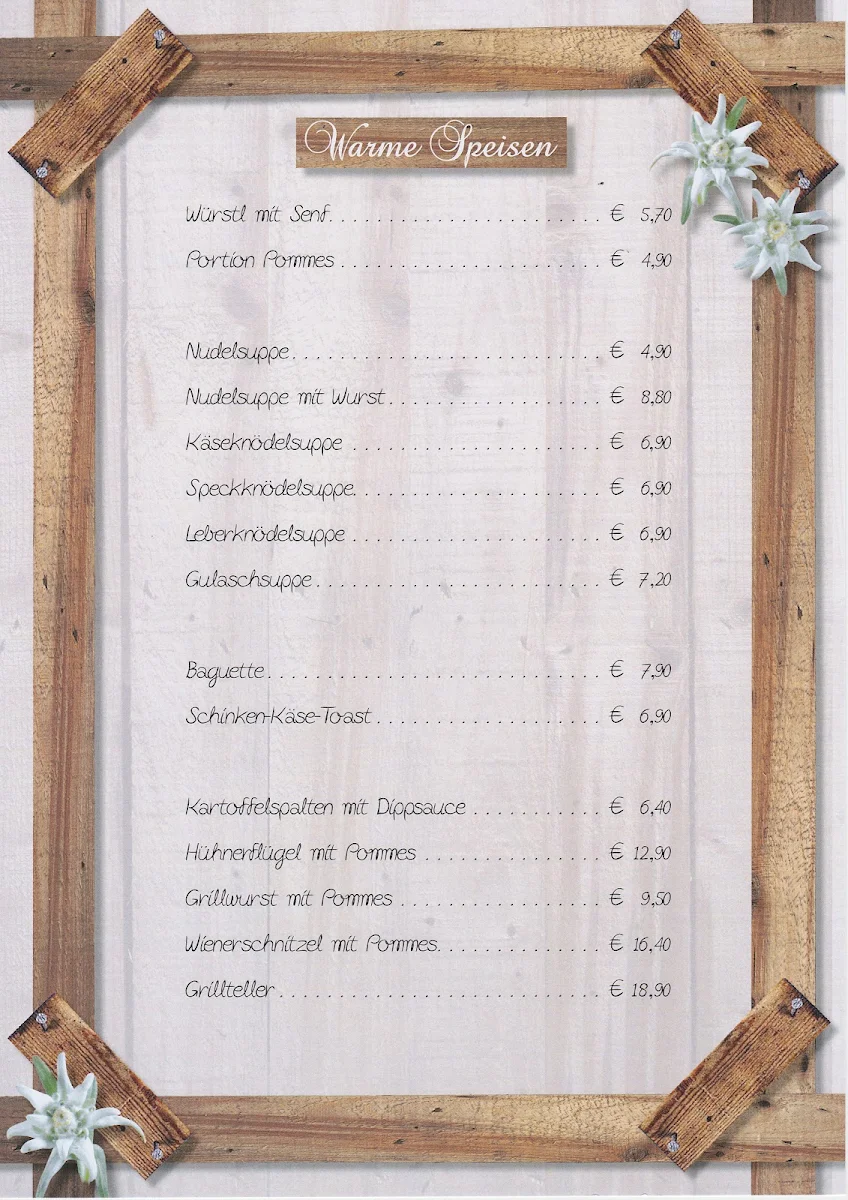 Warme Speisen
Würstl mit Senf. . . . . . . . . . . . . . . . . . . . . . . € 5,70
Portion Pommes . . . . . . . . . . . . . . . . . . . . . . € 4,90
Nudelsuppe. . . . . . . . . . . . . . . . . . . . . . . . . . € 4,90
Nudelsuppe mit Wurst. . . . . . . . . . . . . . . . . . € 8,80
Käseknödelsuppe . . . . . . . . . . . . . . . . . . . . . € 6,90
Speckknödelsuppe. . . . . . . . . . . . . . . . . . . . . € 6,90
Leberknödelsuppe . . . . . . . . . . . . . . . . . . . . . € 6,90
Gulaschsuppe. . . . . . . . . . . . . . . . . . . . . . . . € 7,20
Baguette. . . . . . . . . . . . . . . . . . . . . . . . . . . . € 7,90
Schinken-Käse-Toast . . . . . . . . . . . . . . . . . . . € 6,90
Kartoffelspalten mit Dippsauce . . . . . . . . . . . € 6,40
Hühnerflügel mit Pommes . . . . . . . . . . . . . . . € 12,90
Grillwurst mit Pommes . . . . . . . . . . . . . . . . . € 9,50
Wienerschnitzel mit Pommes. . . . . . . . . . . . . . € 16,40
Grillteller . . . . . . . . . . . . . . . . . . . . . . . . . . . € 18,90